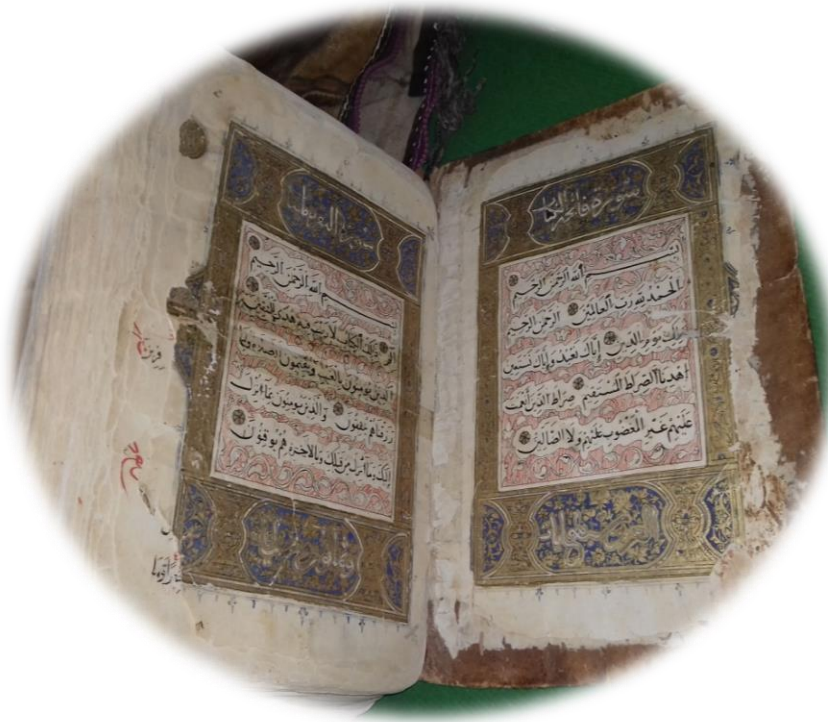 سورة فاتحة الكتاب
بسم الله الرحمن الرحيم
الحمد لله رب العالمين الرحمن الرحيم
ملك يوم الدين إياك نعبد وإياك نستعين
اهدنا الصراط المستقيم صراط الذين أنعمت
عليهم غير المغضوب عليهم ولا الضالين
سورة البقرة
بسم الله الرحمن الرحيم
الم ذلك الكتاب لا ريب فيه هدى للمتقين
الذين يؤمنون بالغيب ويقيمون الصلاة ومما
رزقناهم ينفقون والذين يؤمنون بما أنزل
إليك وما أنزل من قبلك وبالآخرة هم يوقنون